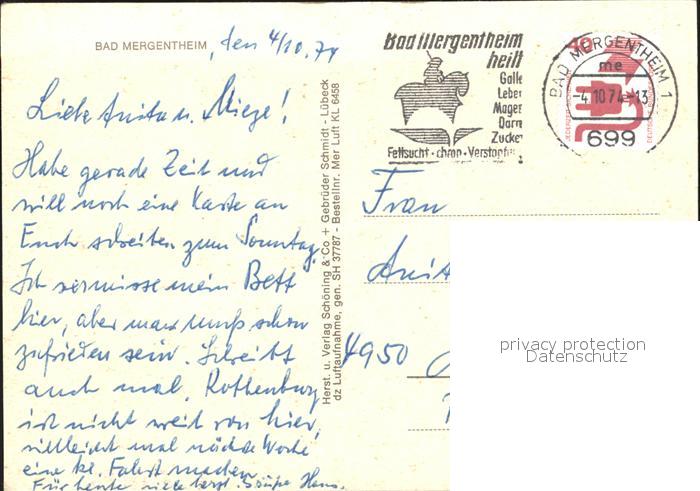 BAD MERGENTHEIM, den 4/10.74
Liebe Anita u. Mieze!
Habe gerade Zeit und
will noch eine Karte an
Euch schreiben zum Sonntag.
Ich vermisse mein Bett
hier, aber man muß schon
zufrieden sein. Schreibt
auch mal. Rothenburg
ist nicht weit von hier,
vielleicht mal nächste Woche
eine kl. Fahrt machen.
Für heute viele herzl. Grüße Hans.
Herst. u. Verlag Schöning & Co + Gebrüder Schmidt - Lübeck
dz Luftaufnahme, gen. SH 37787 - Bestellnr. Mer Luft KL 6458
Bad Mergentheim
heilt
Galle
Leber
Magen
Darm
Zucker
Fettsucht · chron · Verstopfg
BAD MERGENTHEIM 1
me
-4.10.74-13
699
Frau
4950
privacy protection
Datenschutz